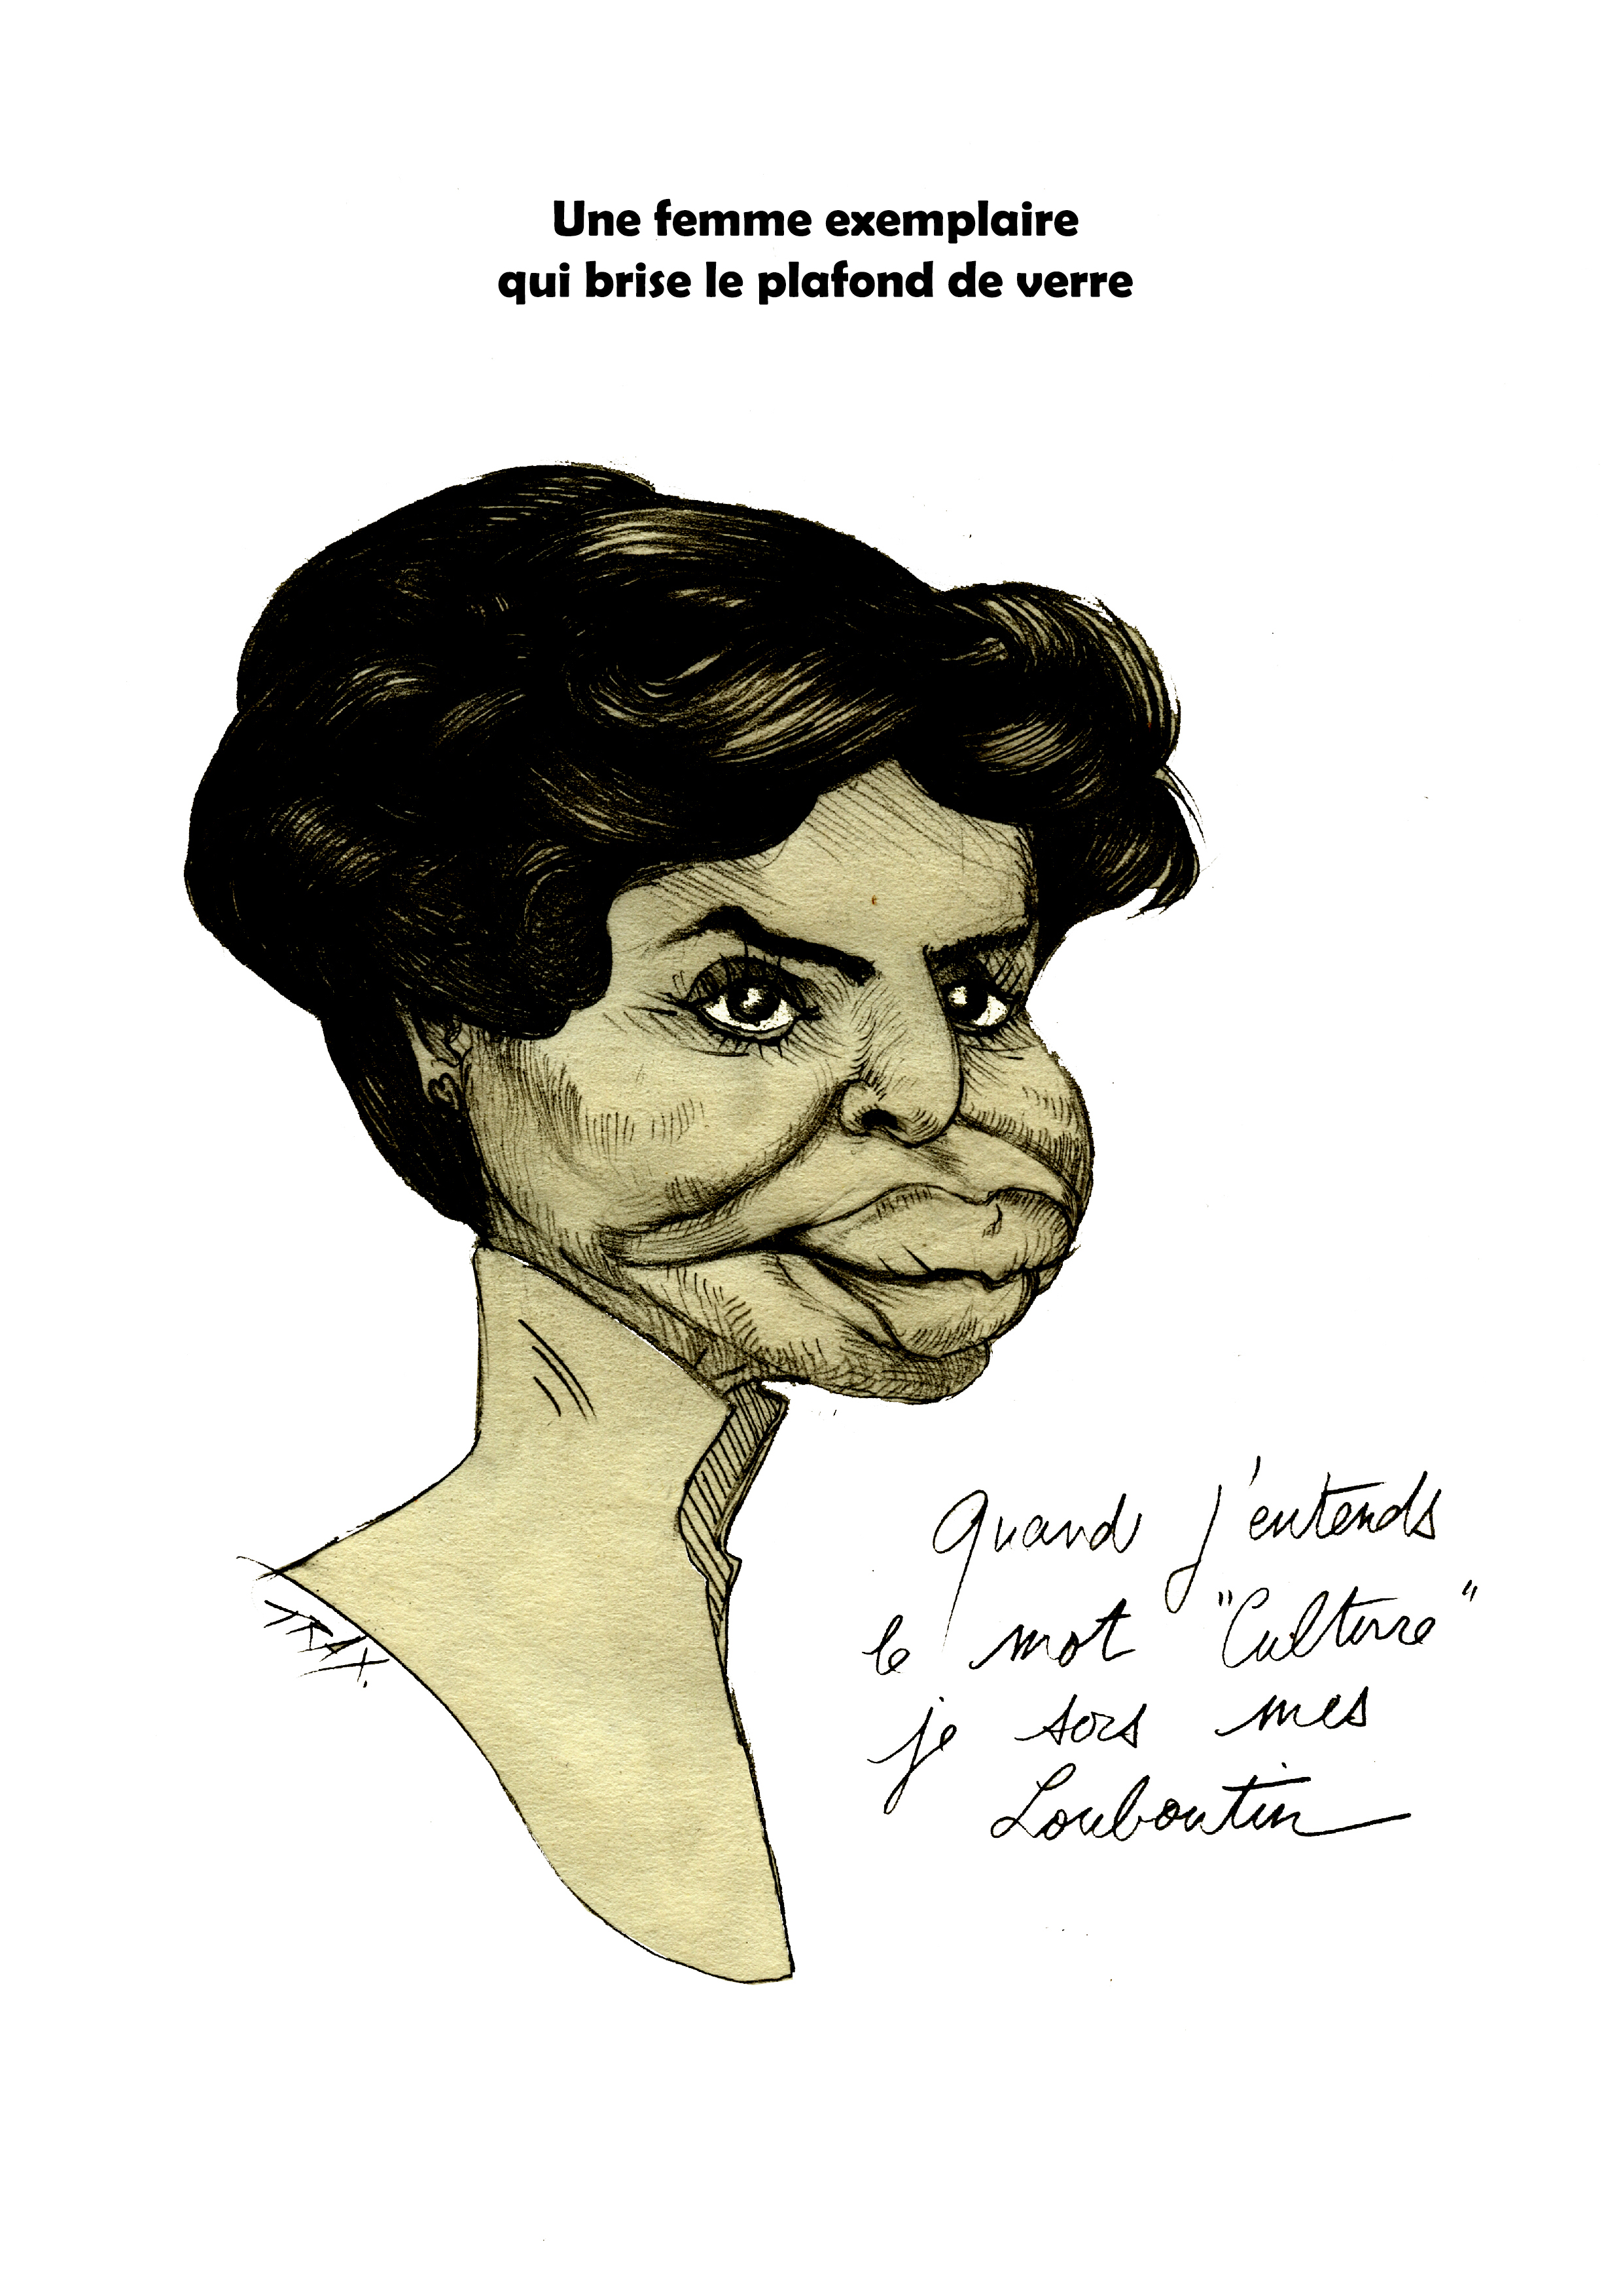 Une femme exemplaire
qui brise le plafond de verre
Quand j'entends
le mot "Culture"
je sors mes
Louboutin
TRAX.